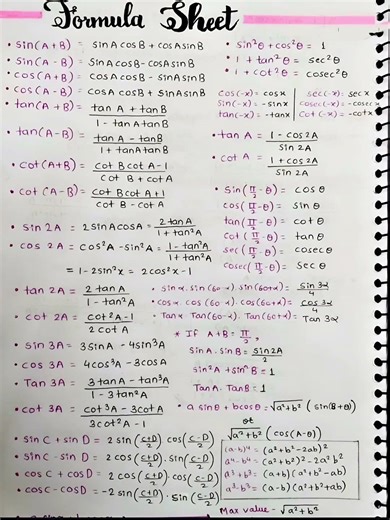 Formula Sheet
• sin(A+B) = sinA cosB + cosA sinB
• sin(A-B) = sinA cosB - cosA sinB
• cos(A+B) = cosA cosB - sinA sinB
• cos(A-B) = cosA cosB + sinA sinB
• tan(A+B) = (tan A + tan B)/(1 - tan A tan B)
• tan(A-B) = (tan A - tan B)/(1 + tan A tan B)
• cot(A+B) = (cot B cot A - 1)/(cot B + cot A)
• cot(A-B) = (cot B cot A + 1)/(cot B - cot A)
• sin 2A = 2 sinA cosA = (2 tan A)/(1 + tan²A)
• cos 2A = cos²A - sin²A = (1 - tan²A)/(1 + tan²A)
= 1 - 2sin²x = 2cos²x - 1
• tan 2A = (2 tan A)/(1 - tan²A)
• cot 2A = (cot²A - 1)/(2 cot A)
• sin 3A = 3 sinA - 4 sin³A
• cos 3A = 4cos³A - 3cosA
• Tan 3A = (3 tanA - tan³A)/(1 - 3 tan²A)
• cot 3A = (cot³A - 3cotA)/(3cot²A - 1)
• sin C + sin D = 2 sin((C+D)/2) cos((C-D)/2)
• sin C - sin D = 2 cos((C+D)/2). sin((C-D)/2)
• cos C + cos D = 2 cos((C+D)/2). cos((C-D)/2)
• cos C - cos D = -2 sin((C+D)/2). sin((C-D)/2)
• sin²θ + cos²θ = 1
• 1 + tan²θ = sec²θ
• 1 + cot²θ = cosec²θ
cos(-x) = cos x sec(-x): sec x
sin(-x) = -sin x cosec(-x) = -cosec x
tan(-x) = -tan x cot(-x) = -cot x
• tan A = (1 - cos 2A)/(sin 2A)
• cot A = (1 + cos 2A)/(sin 2A)
• sin(π/2 - θ) = cos θ
cos(π/2 - θ) = sin θ
tan(π/2 - θ) = cot θ
cot(π/2 - θ) = tan θ
sec(π/2 - θ) = cosec θ
cosec(π/2 - θ) = sec θ
• sin α. sin(60-α). sin(60+α) = (sin 3α)/4
• cos α. cos(60-α). cos(60+α) = (cos 3α)/4
• Tan α. Tan(60-α). Tan(60+α) = Tan 3α
* If A+B = π/2,
sin A. sin B = (sin 2A)/2
sin²A + sin²B = 1
Tan A. Tan B = 1
• a sin θ + b cos θ = √a²+b² (sin(B+θ))
or
√a²+b² (cos(A-θ))
= (a²+b²-2ab)²
= (a²+b²)² - 2a²b²
a³+b³ = (a+b)(a²+b²-ab)
a³-b³ = (a-b)(a²+b²+ab)
Max value - √a²+b²